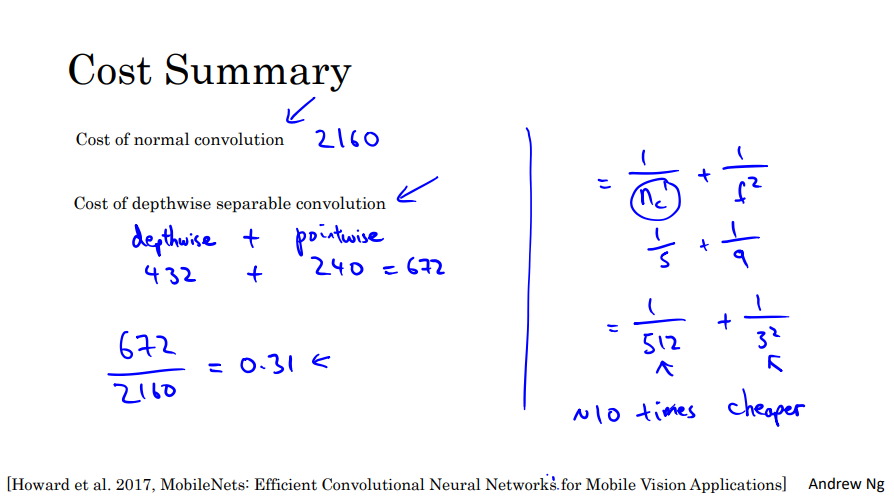 Cost Summary
Cost of normal convolution 2160
Cost of depthwise separable convolution
depthwise + pointwise
432 + 240 = 672
672/2160 = 0.31 ←
= 1/n_c' + 1/f²
1/5 + 1/9
= 1/512 + 1/3²
~10 times cheaper
[Howard et al. 2017, MobileNets: Efficient Convolutional Neural Networks for Mobile Vision Applications] Andrew Ng